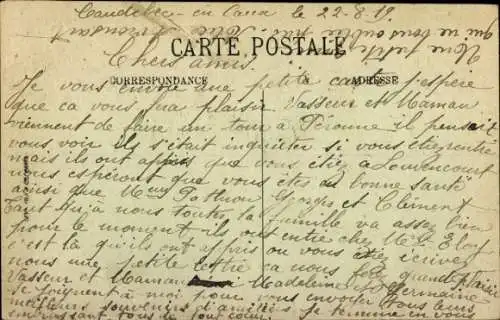 Caudebec-en Caux le 22-8-19.
CARTE POSTALE
Chers amis.
CORRESPONDANCE
ADRESSE
Je vous envoie une petite carte j'espère
que ça vous fra plaisir Vasseur et Maman
viennent de faire un tour à Péronne il pensait
vous voir ils s'était inquiéter si vous étiez rentré
mais ils ont appris que vous étiez a Louvencourt
nous espéront que vous êtes en bonne santé
ainsi que Mme Georges et Clément
Tant qu'à nous toutes la famille va assez bien
pour le moment, ils ont entre chez Mr
c'est là qu'ils ont appris ou vous étiez écrivez
nous une petite lettre ça nous fra grand plaisir
Vasseur et Maman Madeleine et Germaine
se joignent à moi pour vous envoyer tous leurs
meilleurs souvenirs d'amitiés Je termine en vous
embrassant tous de tout coeur.
Une petite
qui ne vous oublie pas